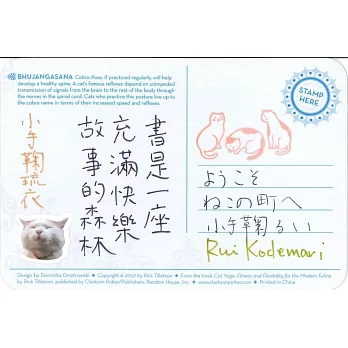 BHUJANGASANA Cobra Pose, if practiced regularly, will help
develop a healthy spine. A cat's famous reflexes depend on unimpeded
transmission of signals from the brain to the rest of the body through
the nerves in the spinal cord. Cats who practice this posture live up to
the cobra name in terms of their increased speed and reflexes.
STAMP
HERE
書是一座
充滿快樂
故事的森林
小手鞠琉衣
ようこそ
ねこの町へ
小手鞠るい
Rui Kodemari
Design by Dominika Dmytrowski Copyright © 2007 by Rick Tillotson From the book Cat Yoga: Fitness and Flexibility for the Modern Feline
by Rick Tillotson, published by Clarkson Potter/Publishers, Random House, Inc. www.clarksonpotter.com Printed in China